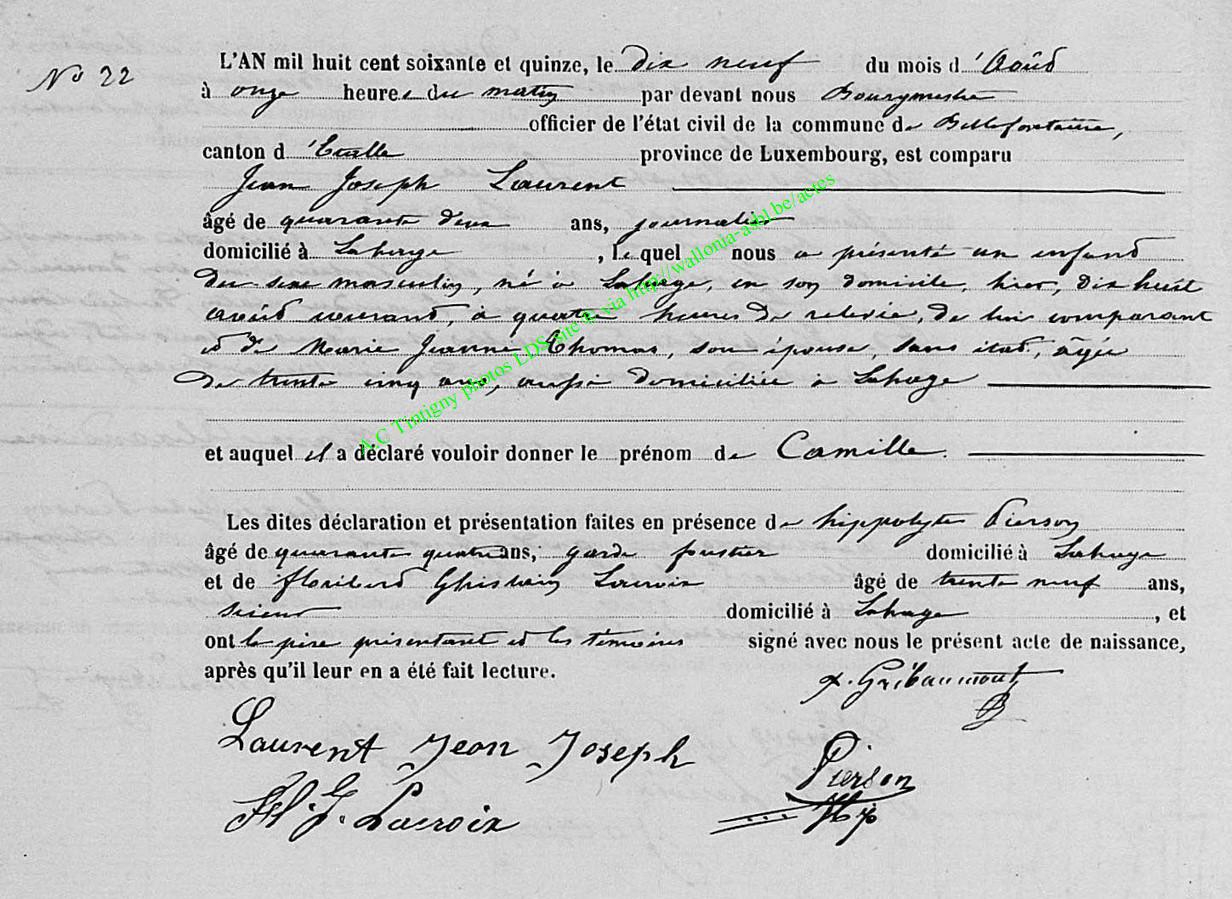 N° 22
L'AN mil huit cent soixante et quinze, le dix neuf du mois d'Août
à onze heures du matin par devant nous Bourgmestre
officier de l'état civil de la commune de Bellefontaine,
canton d'Etalle province de Luxembourg, est comparu
Jean Joseph Laurent
âgé de quarante deux ans, journalier
domicilié à Lahage, lequel nous a présenté un enfant
du sexe masculin, né à Lahage, en son domicile, hier, dix huit
août courant, à quatre heures de relevée, de lui comparant
et de Marie Jeanne Thomas, son épouse, sans état, âgée
de trente cinq ans, aussi domiciliée à Lahage
et auquel il a déclaré vouloir donner le prénom de Camille.
Les dites déclaration et présentation faites en présence de hippolyte Pierson
âgé de quarante quatre ans, garde forestier domicilié à Lahage
et de floribert Ghislain Lacroix âgé de trente neuf ans,
scieur domicilié à Lahage, et
ont le père présentant et les témoins signé avec nous le présent acte de naissance,
après qu'il leur en a été fait lecture.
x. Gribaumont
Laurent Jean Joseph
Pierson
Hip
Fl. G. Lacroix
A.C Tintigny photos LDS site © via http://wallonia-asbl.be/actes